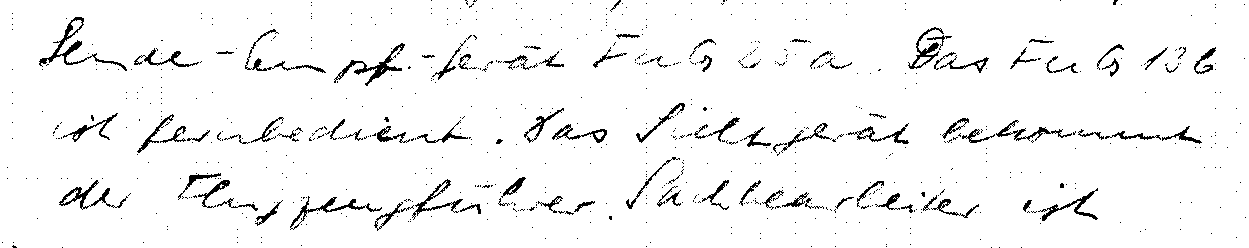 Sende-Empf.-Gerät FuG 25a. Das FuG 136
ist fernbedient. Das Sichtgerät bekommt
der Flugzeugführer. Sachbearbeiter ist